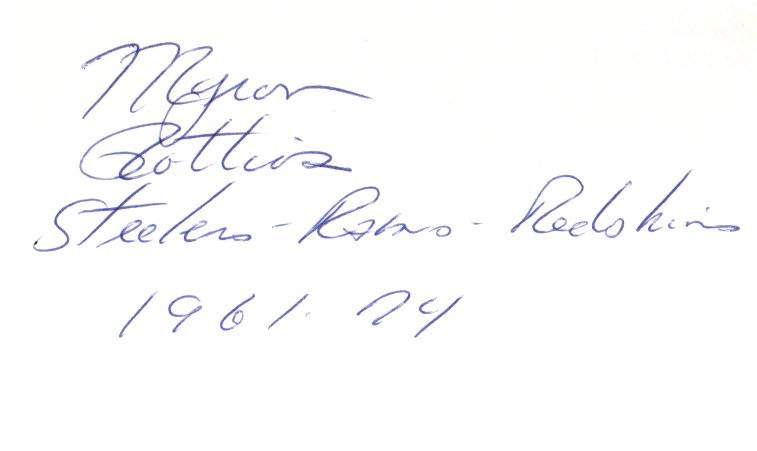 Myron
Pottios
Steelers - Rams - Redskins
1961. 74